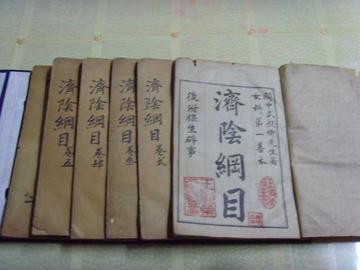 關中武叔卿先生著
女科第一善本
濟陰綱目
後附保生碎事
濟陰綱目 卷貳
濟陰綱目 卷叁
濟陰綱目 卷肆
濟陰綱目 卷五